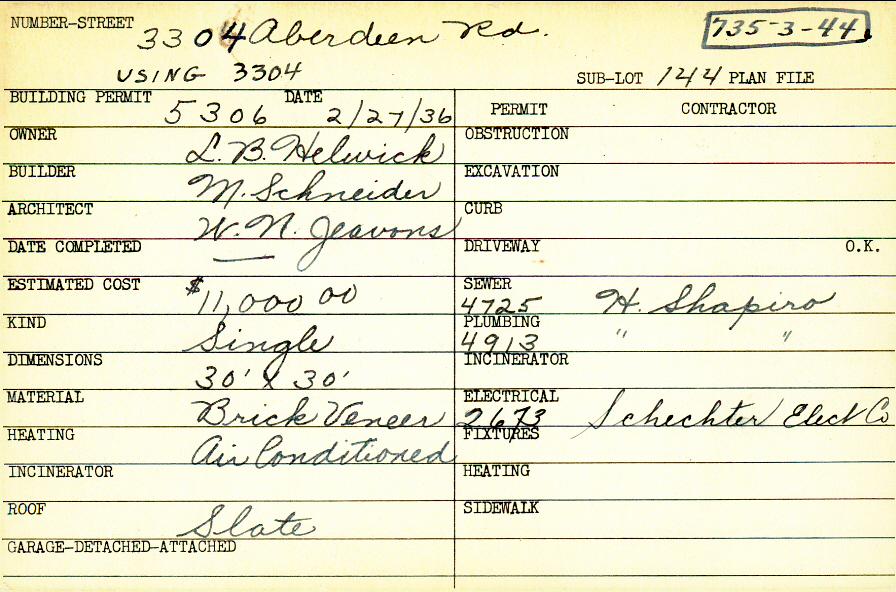 NUMBER-STREET 3304 Aberdeen Rd. 735-3-44
USING 3304 SUB-LOT 144 PLAN FILE
BUILDING PERMIT 5306 DATE 2/27/36
OWNER L. B. Helwick
BUILDER M. Schneider
ARCHITECT W. N. Jeavons
DATE COMPLETED —
ESTIMATED COST $11,000 00
KIND Single
DIMENSIONS 30' x 30'
MATERIAL Brick Veneer
HEATING Air Conditioned
INCINERATOR
ROOF Slate
GARAGE-DETACHED-ATTACHED
PERMIT CONTRACTOR
OBSTRUCTION
EXCAVATION
CURB
DRIVEWAY O.K.
SEWER
4725 H. Shapiro
PLUMBING
4913 " "
INCINERATOR
ELECTRICAL
2673 Schechter Elect Co
FIXTURES
HEATING
SIDEWALK